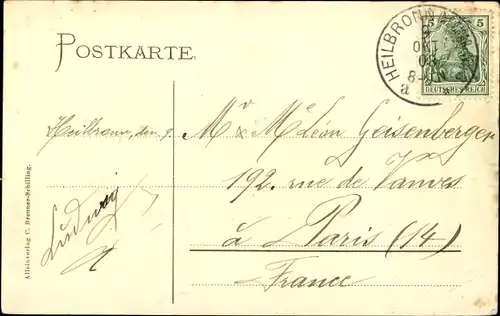 POSTKARTE.
HEILBRONN
9
OKT
8-9 N
a
5 5
DEUTSCHES REICH
Heilbronn, den 9.
Mr & Me Léon Geisenberger
192. rue de Vanves
à Paris (14)
France
Ludwig
Alleinverlag C. Bremer-Schilling.